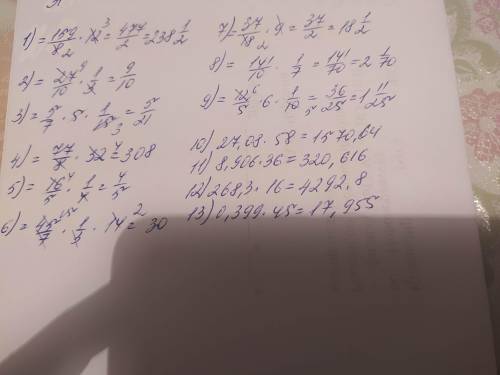 1) = 159/8₂ · 12³ = 477/2 = 238 1/2
2) = 27⁹/10 · 1/3 = 9/10
3) = 5/7 · 5 · 1/15₃ = 5/21
4) = 77/8 · 32⁴ = 308
5) = 16⁴/5 · 1/4 = 4/5
6) = 45¹⁵/7 · 1/3 · 14² = 30
7) = 37/18₂ · 9 = 37/2 = 18 1/2
8) = 141/10 · 1/7 = 141/70 = 2 1/70
9) = 12⁶/5 · 6 · 1/10₅ = 36/25 = 1 11/25
10) 27,08 · 58 = 1570,64
11) 8,906 · 36 = 320,616
12) 268,3 · 16 = 4292,8
13) 0,399 · 45 = 17,955